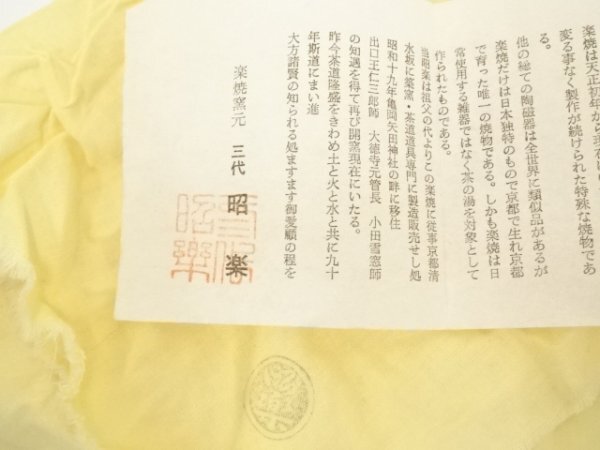 楽焼は天正初年から現在
変る事なく製作が続けられた特殊な焼物であ
る。
他の総ての陶磁器は全世界に類似品があるが
楽焼だけは日本独特のもので京都で生れ京都
で育った唯一の焼物である。しかも楽焼は日
常使用する雑器ではなく茶の湯を対象として
作られたものである。
当昭楽は祖父の代よりこの楽焼に従事京都清
水坂に築窯・茶道道具専門に製造販売せし処
昭和十九年亀岡矢田神社の畔に移住
出口王仁三郎師 大徳寺元管長 小田雪窓師
の知遇を得て再び開窯現在にいたる。
昨今茶道隆盛をきわめ土と火と水と共に九十
年斯道にまい進
大方諸賢の知られる処ますます御愛顧の程を
楽焼窯元 三代 昭楽